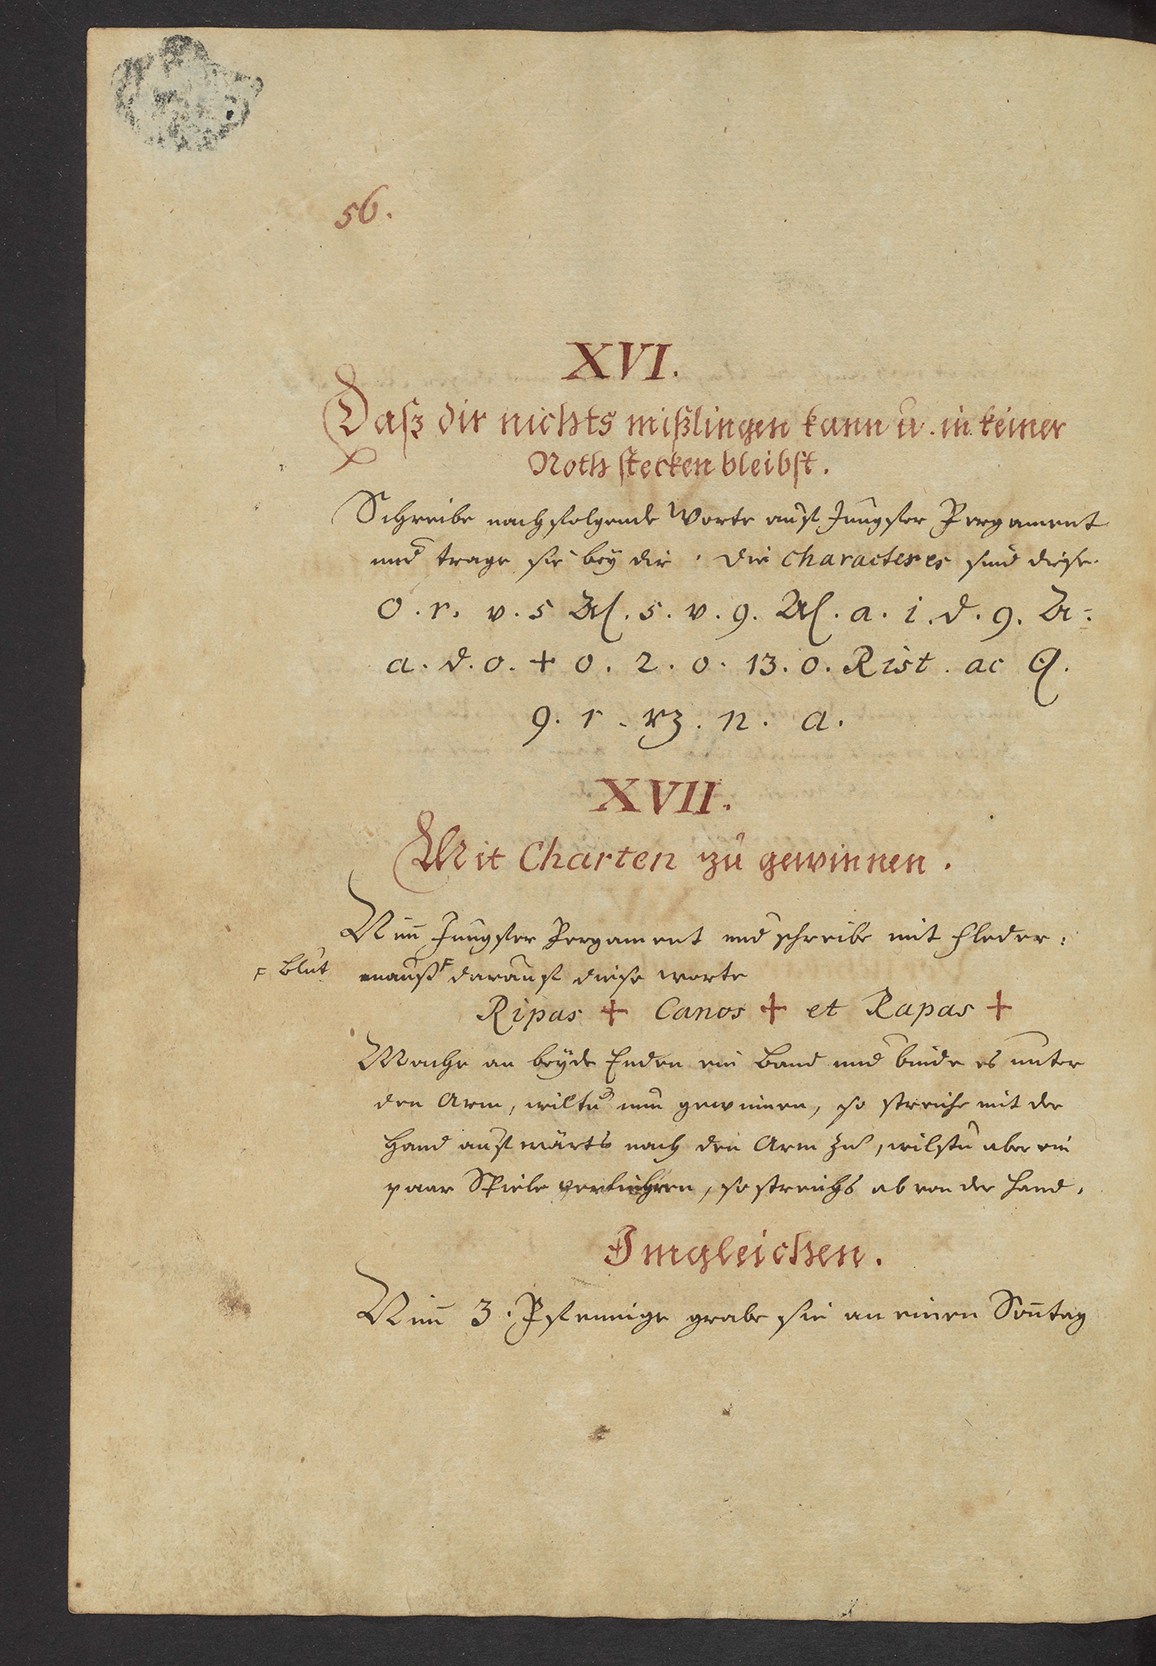 56.
XVI.
Daß dir nichts mißlingen kann u. in keiner
Noth stecken bleibst.
Schreibe nachfolgende Worte auff Jungfer Pergament
und trage sie bey dir. Die Characteres sind diese.
O. r. v. 5 . 5. v. 9. . a. i. d. 9.
a. d. o. + o. 2. o. 13. o. Rist. ac Q.
9. r. rz. n. a.
XVII.
Mit Charten zu gewinnen.
Nim̄ Jungfer Pergament und schreibe mit Fleder:
F Blut
mauß F darauff diese worte
Ripas + Canos + et Rapas +
Mache an beyde Enden ein Band und binde es unter
den Arm, wiltu nun gewinnen, so streiche mit der
Hand auffwärts nach den Arm zu, wilstu aber ein
paar Spiele verliehren, so streichs ab von der Hand.
Imgleichen.
Nim̄ 3. Pfennige grabe sie an einen Son̄tag